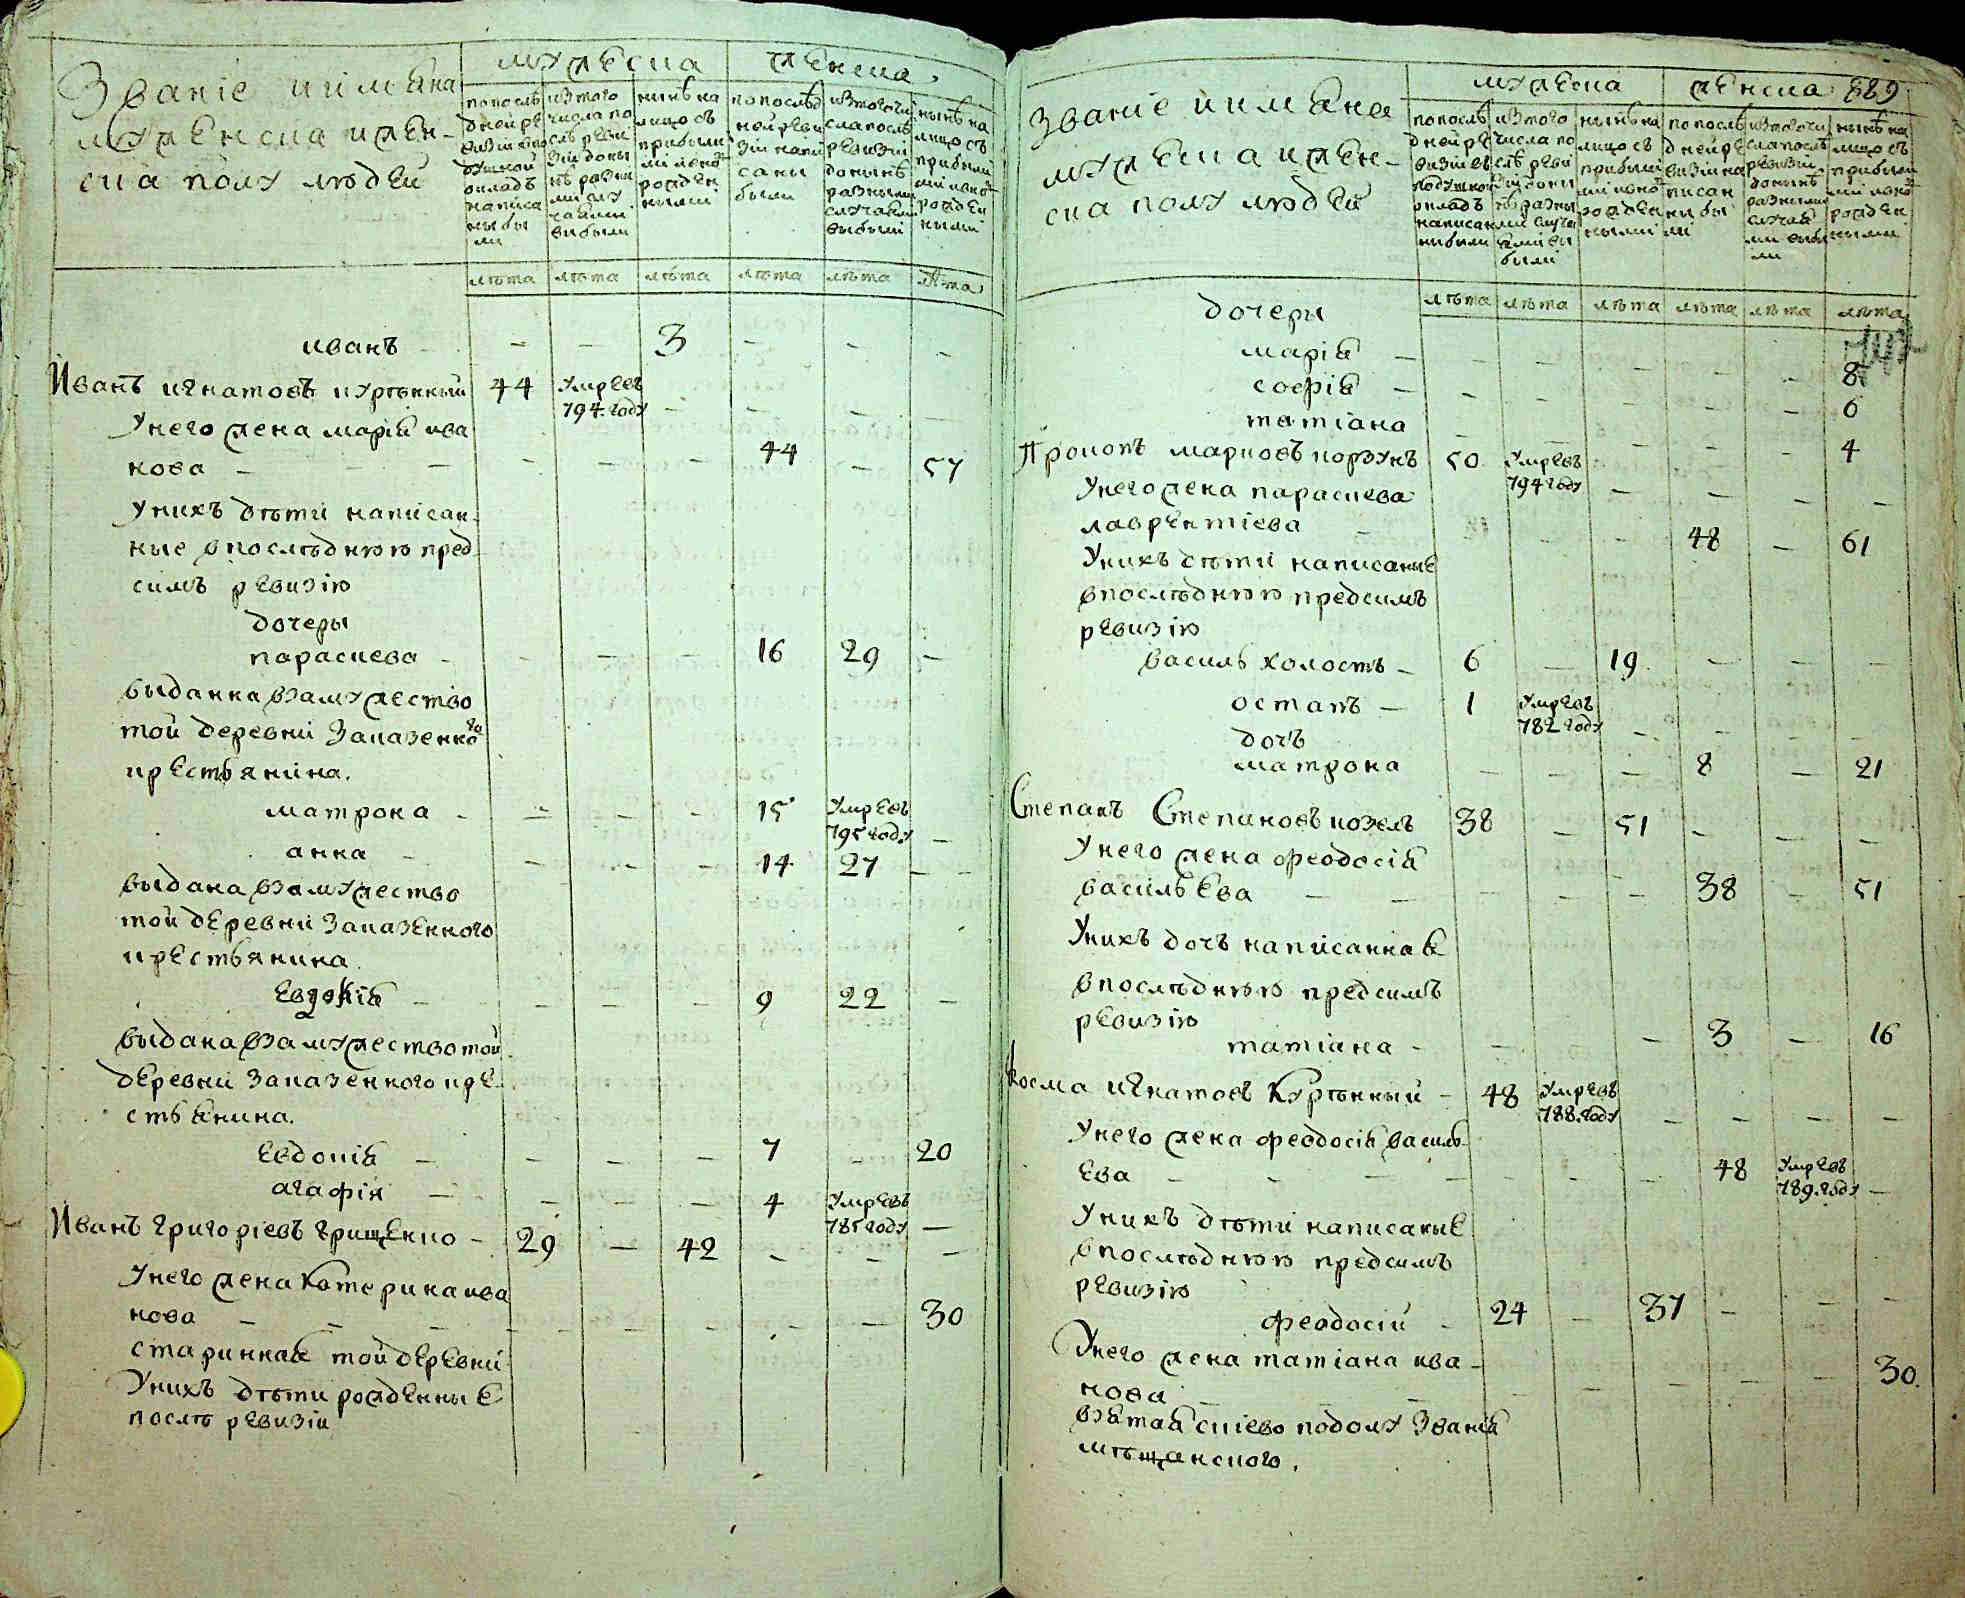 Званіе иимѧна
мужеска ижен-
ска полу людей
мужеска
женска
попослѣ
дней ре
визіи впо
душной
окладъ
написа
ны бы
ли
изтого
числа по
слѣ реви
зіи доны
нѣ разны
ми слу
чаями
выбыли
нынѣ на
лицо съ
прибылы
ми ивно
рожден
ными
попослѣд
ней реви
зіи напи
саны
были
изтогочи
слапослѣ
ревизіи
донынѣ
разными
случаями
выбыли
нынѣ на
лицо съ
прибылы
ми ивно
рожден
ными
лѣта лѣта лѣта лѣта лѣта лѣта
иванъ - - - 3 - - -
Иванъ игнатовъ куртьнный 44 умревъ
794. году - - - -
Унего жена марія ива
нова - - - - - 44 - 57
Унихъ дѣти написан-
ные впослѣднюю пред
симъ ревизію
дочеры
параскева - - - - 16 29 -
выданна взамужество
той деревни заказенного
крестьянина.
матрона - - - - 15 умревъ
795 году -
анна - - - - 14 27 -
выдана взамужество
той деревни заказенного
крестьянина.
Евдокія - - - - 9 22 -
выдана взамужество той
деревни заказенного кре-
стьянина.
Евдокія - - - - 7 - 20
агафія - - - - 4 умревъ
785 году -
Иванъ григоріевъ грищенко - 29 - 42 - - -
Унего жена катерина ива
нова - - - - - - - 30
стариннаѧ той деревни
Унихъ дѣти рожденные
послѣ ревизіи
Званіе иимѧна
мужеска ижен-
ска полу людей
мужеска
женска 889
попослѣ
дней ре
визіи въ
подушной
окладъ
написан
ни были
изтого
числа по
слѣ реви
зіи дони
нѣ разны
ми случа
ями вы
были
нынѣ на
лицо съ
прибылы
ми ивно
рожден
ными
попослѣ
дней ре
визіи на
писан
ни бы
ли
изтогочи
слапослѣ
ревизіи
донынѣ
разными
случая
ми выбы
ли
нынѣ на
лицо съ
прибылы
ми ивно
рожден
ными
лѣта лѣта лѣта лѣта лѣта лѣта
дочеры
марія - - - - - - 8
софія - - - - - - 6
татіана - - - - - 4
Прокопъ марковъ корзунъ 50 умревъ
794 году - - - -
Унего жена параскева
лаврентіева - - - - 48 - 61
Унихъ дѣти написаные
впослѣднюю предсимъ
ревизію
василь холостъ - 6 - 19 - - -
остапъ - 1 умревъ
782 году - - - -
дочь
матрона - - - 8 - 21
Степанъ Степановъ козелъ 38 - 51 - - -
Унего жена феодосія
васильева - - - - - 38 - 51
Унихъ дочь написаннаѧ
впослѣднюю предсимъ
ревизію
татіана - - - 3 - 16
косма игнатовъ куртьнный - 48 умревъ
788. году - - - -
Унего жена феодосія василь-
ева - - - - - - 48 умревъ
789. году -
Унихъ дѣти написаные
впослѣднюю предсимъ
ревизію
феодосій - 24 - 37 - - -
Унего жена татіана ива-
нова - - - - - - - 30.
взѧтаѧ скіево подолу званіѧ
мѣщанского.